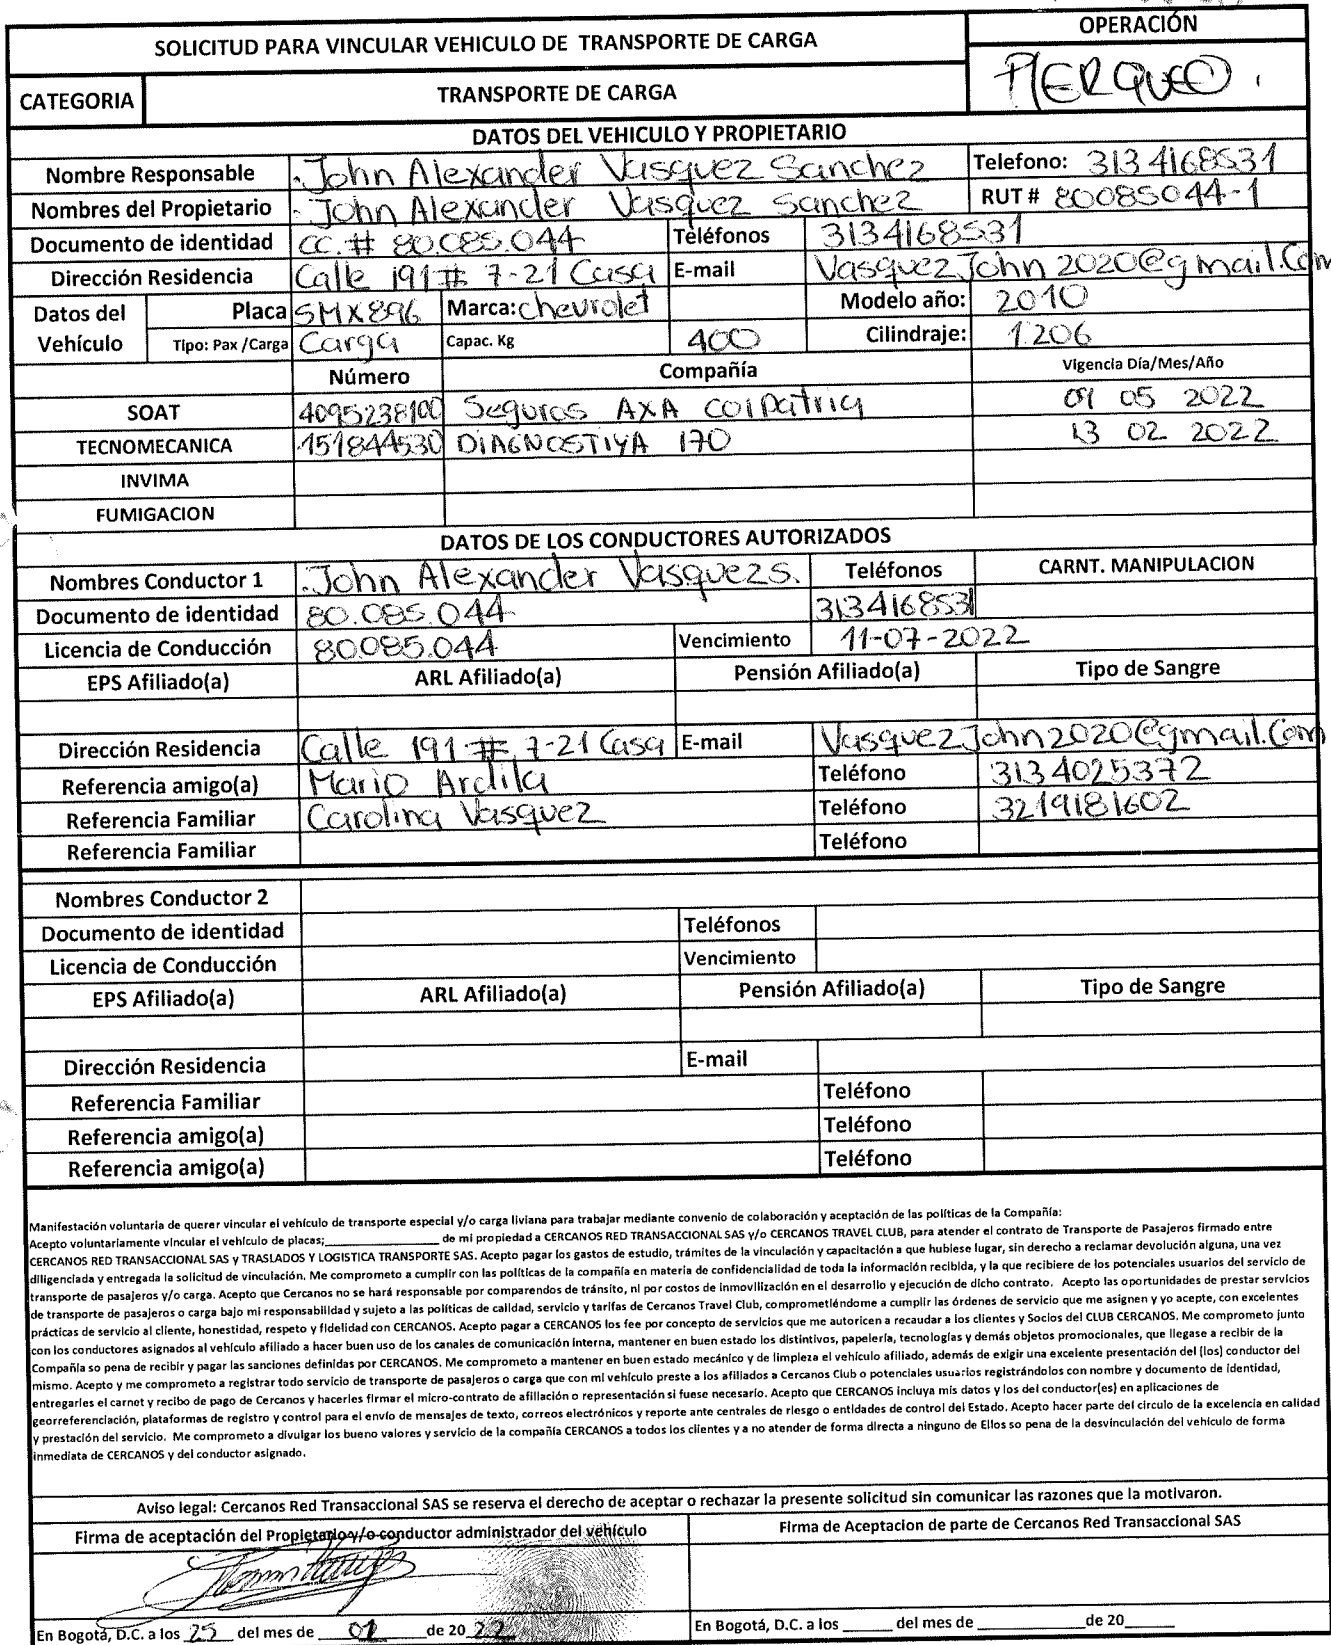 SOLICITUD PARA VINCULAR VEHICULO DE TRANSPORTE DE CARGA
OPERACIÓN
CATEGORIA TRANSPORTE DE CARGA
MERQUEO.
DATOS DEL VEHICULO Y PROPIETARIO
Nombre Responsable John Alexander Vasquez Sanchez Telefono: 3134168531
Nombres del Propietario John Alexander Vasquez Sanchez RUT # 80085044-1
Documento de identidad CC.# 80.085.044 Teléfonos 3134168531
Dirección Residencia Calle 191 # 7-21 Casa E-mail VasquezJohn2020@gmail.Com
Datos del Vehículo Placa SMX896 Marca: chevrolet Modelo año: 2010
Tipo: Pax /Carga Carga Capac. Kg 400 Cilindraje: 1.206
Número Compañía Vigencia Día/Mes/Año
SOAT 4095238100 Seguros AXA colpatria 09 05 2022
TECNOMECANICA 151844530 DIAGNOSTIYA 170 13 02 2022
INVIMA
FUMIGACION
DATOS DE LOS CONDUCTORES AUTORIZADOS
Nombres Conductor 1 John Alexander Vasquez S. Teléfonos CARNT. MANIPULACION
Documento de identidad 80.085.044 3134168531
Licencia de Conducción 80.085.044 Vencimiento 11-07-2022
EPS Afiliado(a) ARL Afiliado(a) Pensión Afiliado(a) Tipo de Sangre
Dirección Residencia Calle 191 # 7-21 Casa E-mail VasquezJohn2020@gmail.Com
Referencia amigo(a) Mario Ardila Teléfono 3134025372
Referencia Familiar Carolina Vasquez Teléfono 3219181602
Referencia Familiar Teléfono
Nombres Conductor 2
Documento de identidad Teléfonos
Licencia de Conducción Vencimiento
EPS Afiliado(a) ARL Afiliado(a) Pensión Afiliado(a) Tipo de Sangre
Dirección Residencia E-mail
Referencia Familiar Teléfono
Referencia amigo(a) Teléfono
Referencia amigo(a) Teléfono
Manifestación voluntaria de querer vincular el vehículo de transporte especial y/o carga liviana para trabajar mediante convenio de colaboración y aceptación de las políticas de la Compañía:
Acepto voluntariamente vincular el vehículo de placas;____________ de mi propiedad a CERCANOS RED TRANSACCIONAL SAS y/o CERCANOS TRAVEL CLUB, para atender el contrato de Transporte de Pasajeros firmado entre
CERCANOS RED TRANSACCIONAL SAS y TRASLADOS Y LOGISTICA TRANSPORTE SAS. Acepto pagar los gastos de estudio, trámites de la vinculación y capacitación a que hubiese lugar, sin derecho a reclamar devolución alguna, una vez
diligenciada y entregada la solicitud de vinculación. Me comprometo a cumplir con las políticas de la compañía en materia de confidencialidad de toda la información recibida, y la que recibiere de los potenciales usuarios del servicio de
transporte de pasajeros y/o carga. Acepto que Cercanos no se hará responsable por comparendos de tránsito, ni por costos de inmovilización en el desarrollo y ejecución de dicho contrato. Acepto las oportunidades de prestar servicios
de transporte de pasajeros o carga bajo mi responsabilidad y sujeto a las políticas de calidad, servicio y tarifas de Cercanos Travel Club, comprometiéndome a cumplir las órdenes de servicio que me asignen y yo acepte, con excelentes
prácticas de servicio al cliente, honestidad, respeto y fidelidad con CERCANOS. Acepto pagar a CERCANOS los fee por concepto de servicios que me autoricen a recaudar a los clientes y Socios del CLUB CERCANOS. Me comprometo junto
con los conductores asignados al vehículo afiliado a hacer buen uso de los canales de comunicación interna, mantener en buen estado los distintivos, papelería, tecnologías y demás objetos promocionales, que llegase a recibir de la
Compañía so pena de recibir y pagar las sanciones definidas por CERCANOS. Me comprometo a mantener en buen estado mecánico y de limpieza el vehículo afiliado, además de exigir una excelente presentación del (los) conductor del
mismo. Acepto y me comprometo a registrar todo servicio de transporte de pasajeros o carga que con mi vehículo preste a los afiliados a Cercanos Club o potenciales usuarios registrándolos con nombre y documento de identidad,
entregarles el carnet y recibo de pago de Cercanos y hacerles firmar el micro-contrato de afiliación o representación si fuese necesario. Acepto que CERCANOS incluya mis datos y los del conductor(es) en aplicaciones de
georreferenciación, plataformas de registro y control para el envío de mensajes de texto, correos electrónicos y reporte ante centrales de riesgo o entidades de control del Estado. Acepto hacer parte del circulo de la excelencia en calidad
y prestación del servicio. Me comprometo a divulgar los bueno valores y servicio de la compañía CERCANOS a todos los clientes y a no atender de forma directa a ninguno de Ellos so pena de la desvinculación del vehículo de forma
inmediata de CERCANOS y del conductor asignado.
Aviso legal: Cercanos Red Transaccional SAS se reserva el derecho de aceptar o rechazar la presente solicitud sin comunicar las razones que la motivaron.
Firma de aceptación del Propietario y/o conductor administrador del vehículo Firma de Aceptacion de parte de Cercanos Red Transaccional SAS
En Bogotá, D.C. a los 25 del mes de 01 de 2022 En Bogotá, D.C. a los ______ del mes de ____________ de 20_____